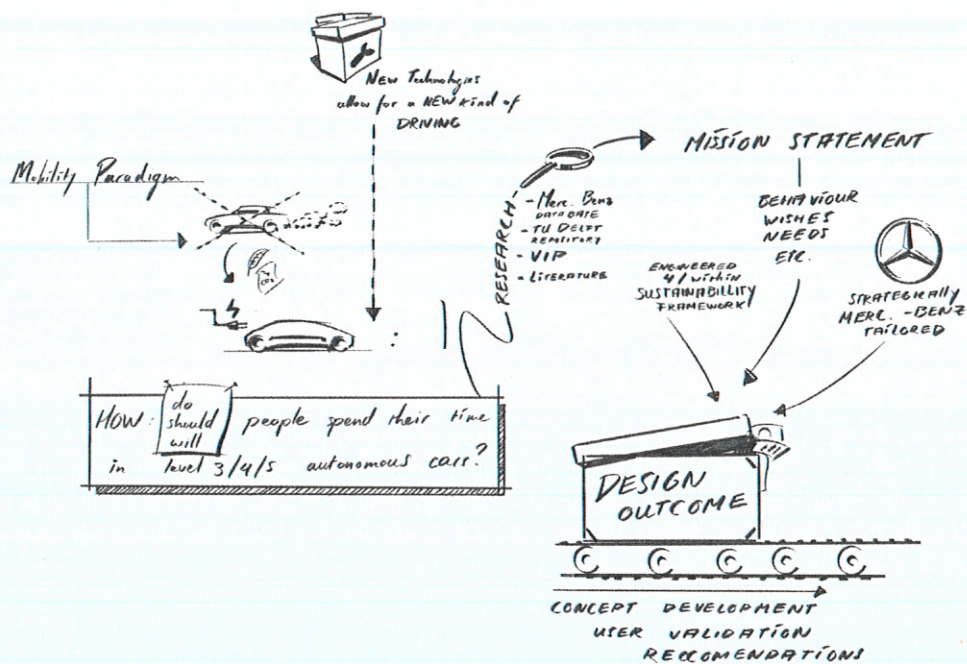 NEW Technologies
allow for a NEW kind of
DRIVING
Mobility Paradigm
HOW: do
should
will
people spend their time
in level 3/4/5 autonomous cars?
RESEARCH
- Merc. Benz
DATABATE
- TU DELFT
REPOSITORY
- VIP
- LITERATURE
MISSION STATEMENT
BEHAVIOUR
WISHES
NEEDS
ETC.
ENGINEERED
W/ WITHIN
SUSTAINABILLITY
FRAMEWORK
STRATEGICALLY
MERC. -BENZ
TAILORED
DESIGN
OUTCOME
CONCEPT DEVELOPMENT
USER VALIDATION
RECCOMENDATIONS